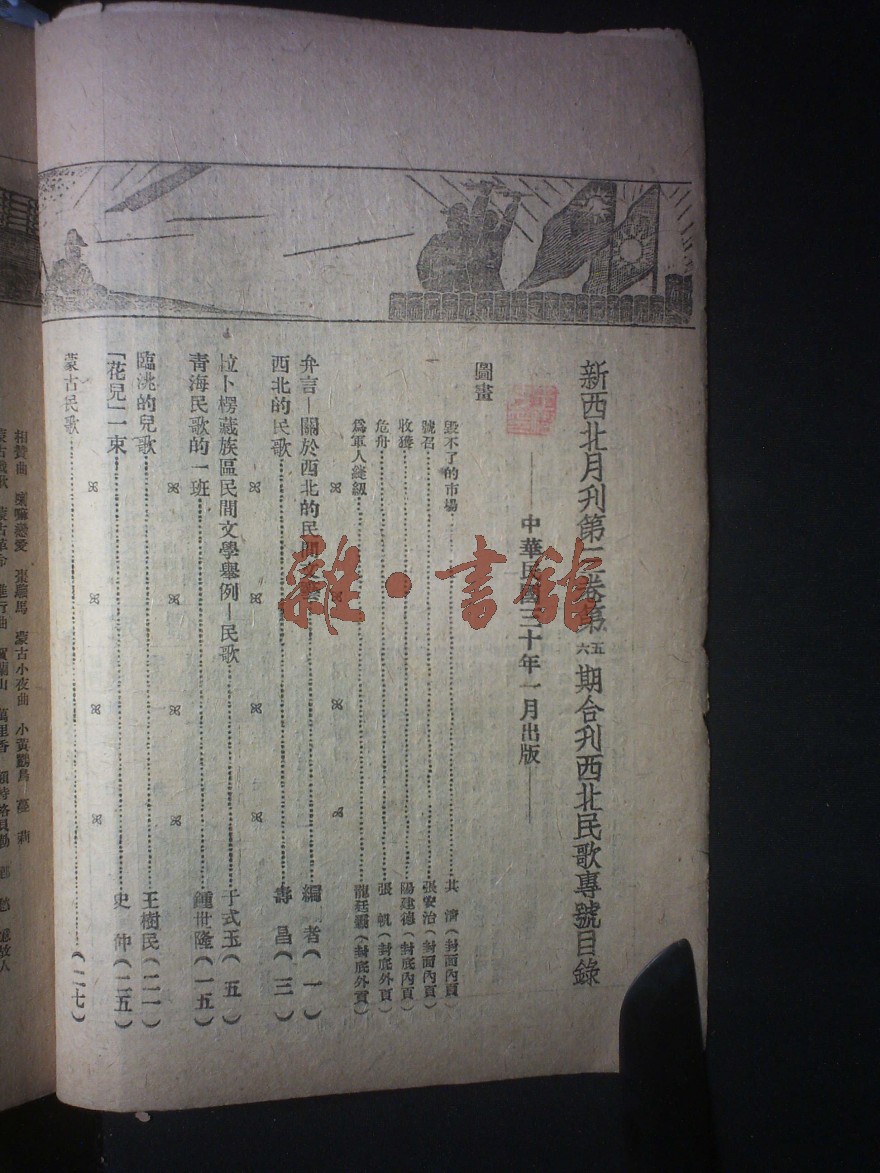 新西北月刊第三卷第五六期合刊西北民歌專號目錄
——中華民國三十年一月出版——
圖畫
毀不了的市場 其濟（封面內頁）
號召 張安治（封面內頁）
收獲 陽建德（封底內頁）
危舟 張帆（封底外頁）
為軍人縫紉 龍廷霸（封底外頁）
弁言—關於西北的民間文藝 編者（一）
西北的民歌 壽昌（三）
拉卜楞藏族區民間文學舉例—民歌 于式玉（五）
青海民歌的一班 鍾世隆（一五）
臨洮的兒歌 王樹民（二一）
「花兒」一束 史仲（二五）
蒙古民歌 （二七）
相贊曲 喇嘛戀愛 張騸馬 蒙古小夜曲 小黃鸝鳥
雜·書館